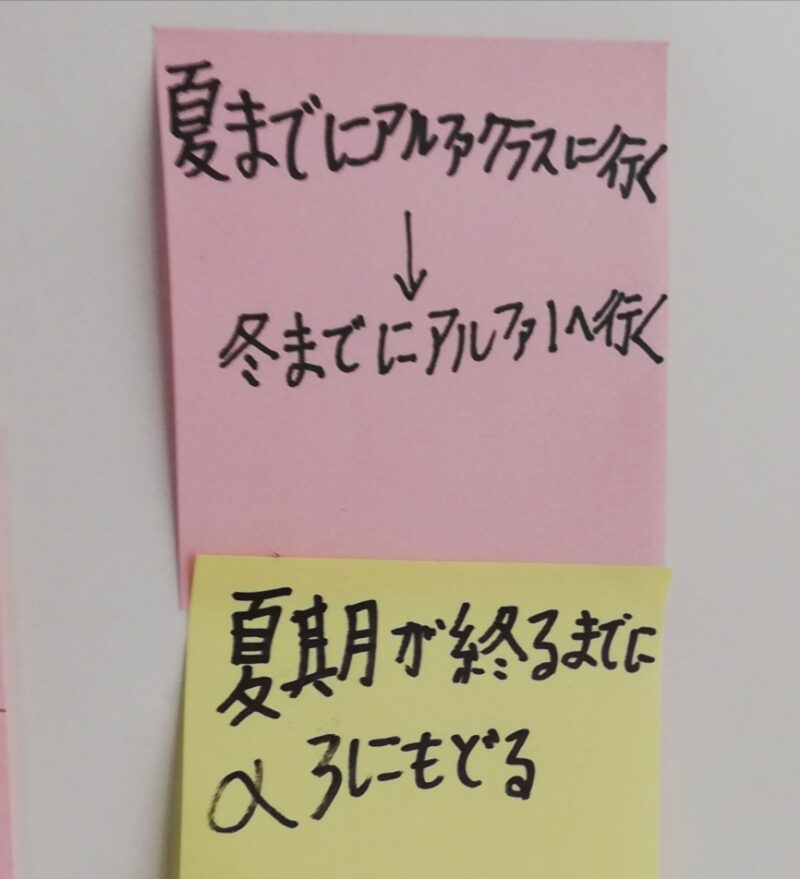 夏までにアルファクラスに行く
↓
冬までにアルファ1へ行く
夏期が終るまでに
α3にもどる